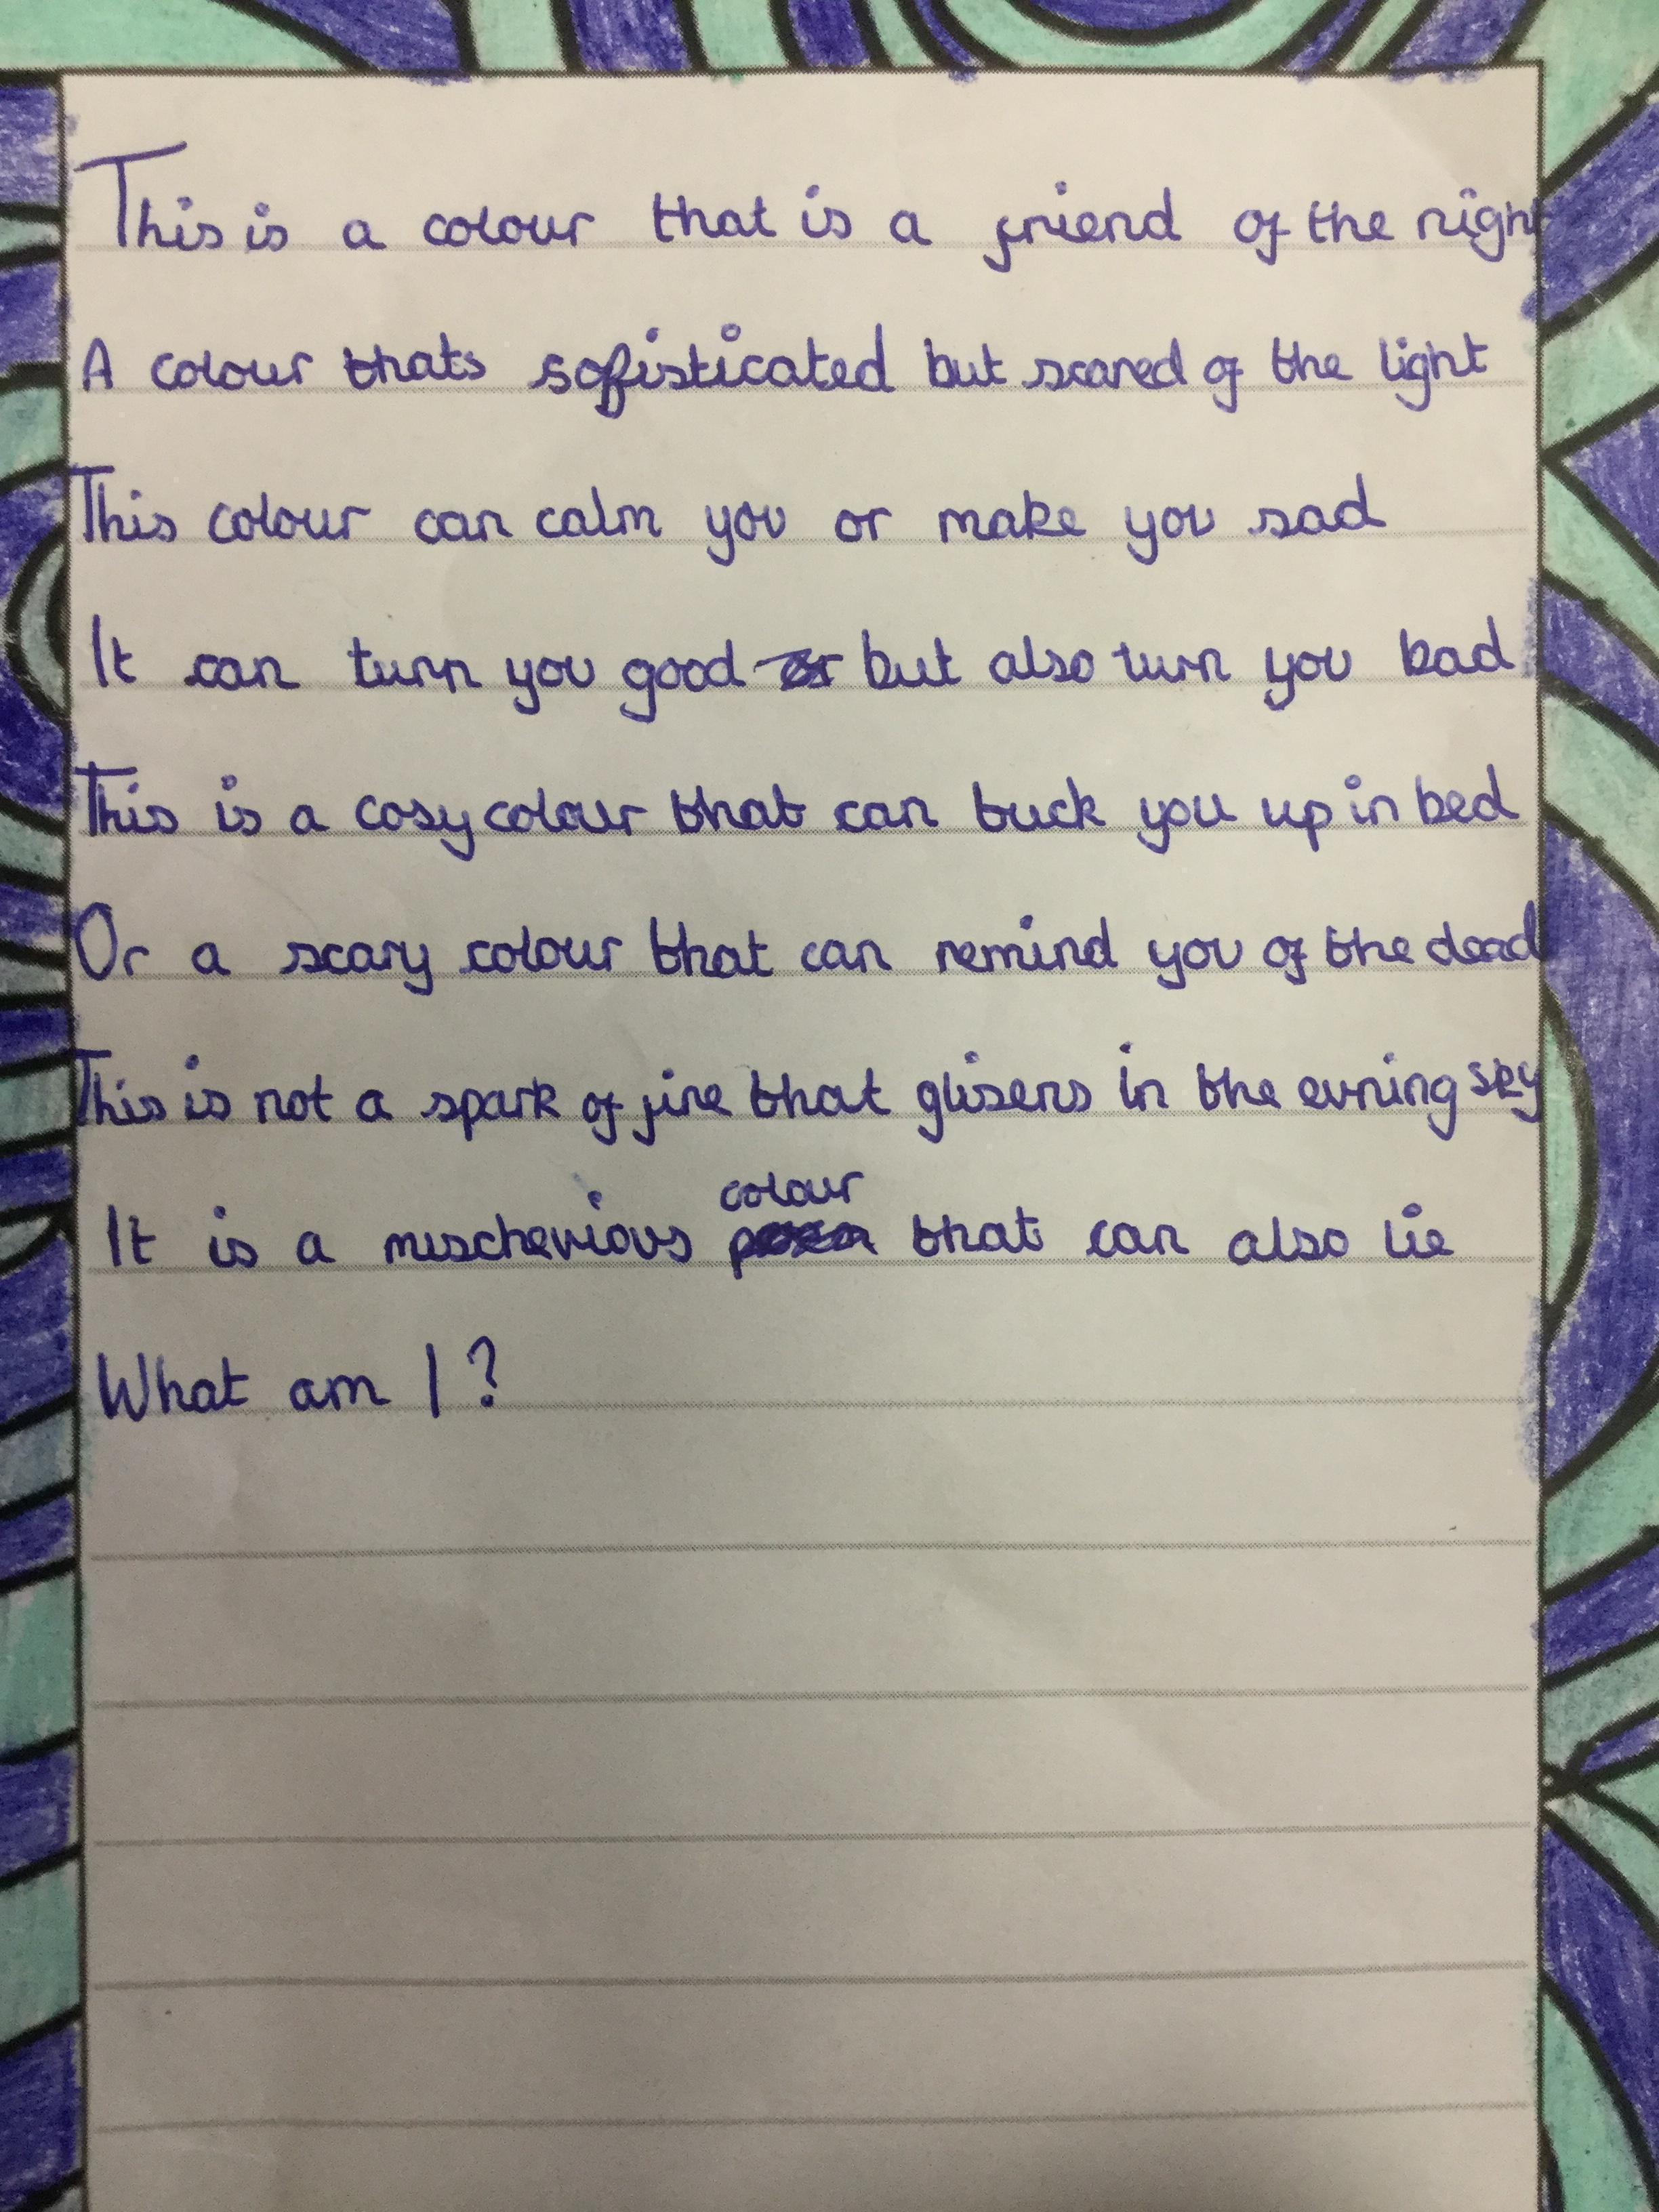 This is a colour that is a friend of the night
A colour thats sofisticated but scared of the light
This colour can calm you or make you sad
It can turn you good but also turn you bad
This is a cosy colour that can tuck you up in bed
Or a scary colour that can remind you of the dead
This is not a spark of fire that glisens in the evning sky
It is a mischevious colour that can also lie
What am I?